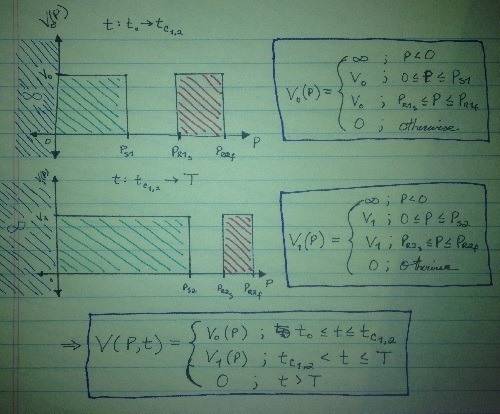 V₀(P)
t : t₀ → t_C₁,₂
V₀
∞
0
P_S1
P_R1s
P_R2f
P
V₀(P) = { ∞ ; P < 0
V₀ ; 0 ≤ P ≤ P_S1
V₀ ; P_R1s ≤ P ≤ P_R1f
0 ; otherwise
t : t_C₁,₂ → T
V₁
∞
0
P_S2
P_R2s
P_R2f
P
V₁(P) = { ∞ ; P < 0
V₁ ; 0 ≤ P ≤ P_S2
V₁ ; P_R2s ≤ P ≤ P_R2f
0 ; otherwise
⇒ V(P,t) = { V₀(P) ; t₀ ≤ t ≤ t_C₁,₂
V₁(P) ; t_C₁,₂ < t ≤ T
0 ; t > T